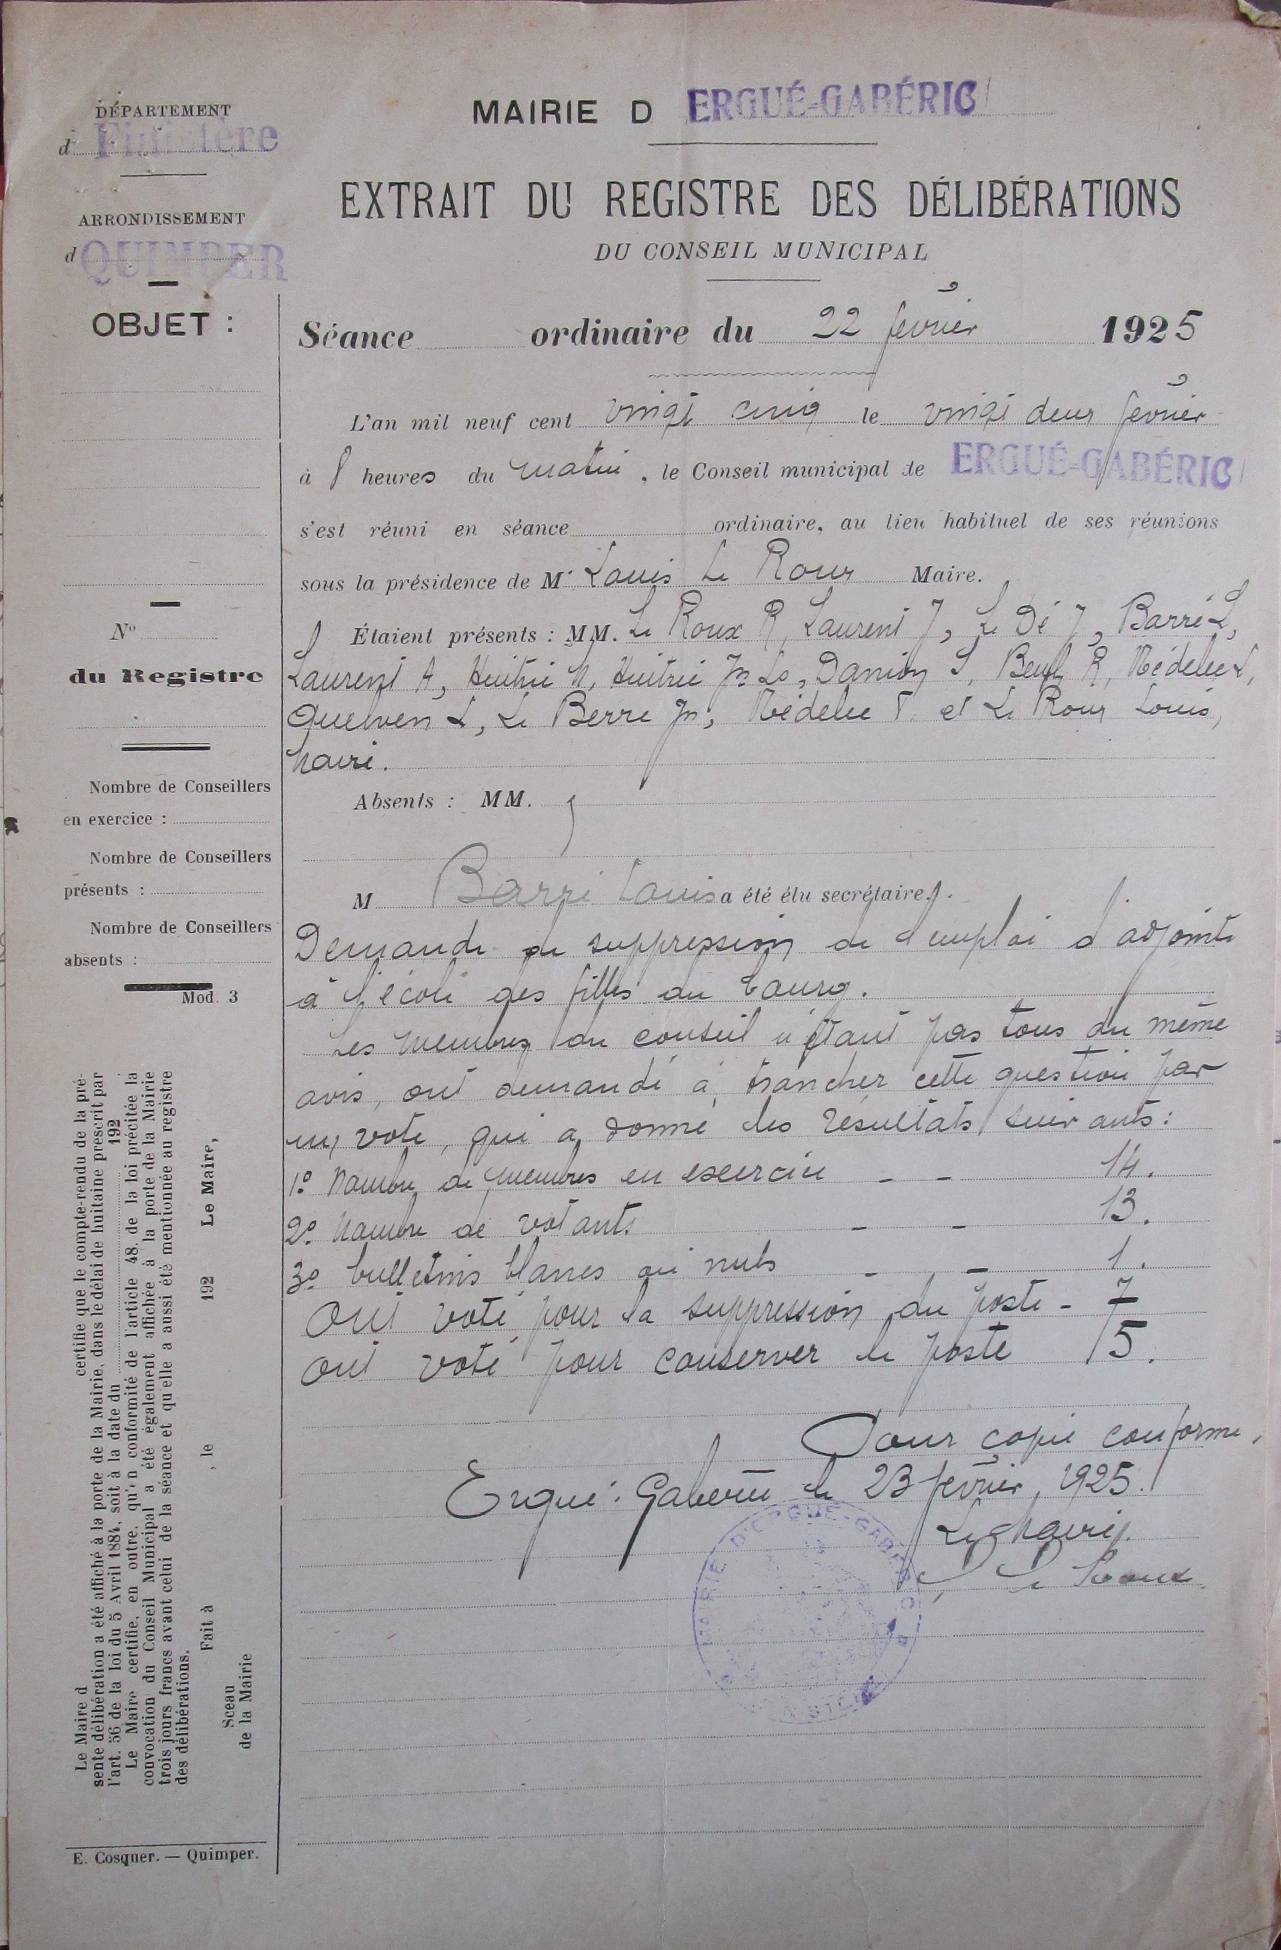 DÉPARTEMENT
d Finistère
ARRONDISSEMENT
d QUIMPER
MAIRIE D ERGUÉ-GABÉRIC
EXTRAIT DU REGISTRE DES DÉLIBÉRATIONS
DU CONSEIL MUNICIPAL
OBJET :
Nº
du Registre
Nombre de Conseillers
en exercice :
Nombre de Conseillers
présents :
Nombre de Conseillers
absents :
Mod. 3
Séance ordinaire du 22 février 1925
L'an mil neuf cent vingt cinq le vingt deux février
à 8 heures du matin, le Conseil municipal de ERGUÉ-GABÉRIC
s'est réuni en séance ordinaire, au lieu habituel de ses réunions
sous la présidence de Mr Louis Le Roux Maire.
Étaient présents : MM. Le Roux R, Laurent J, Le Dé J, Barré L,
Laurent A, Huitric H, Huitric Jn Ls, Danion S, R, Nédelec L,
Quelven L, Le Berre Jn, Nédelec et Le Roux Louis,
maire.
Absents : MM.
M Barré Louis a été élu secrétaire.
Demande de suppression de l'emploi d'adjointe
à l'école des filles du bourg.
Les membres du conseil n'étant pas tous du même
avis, ont demandé à trancher cette question par
un vote, qui a donné les résultats suivants :
1º Nombre de membres en exercice - - 14.
2º Nombre de votants - - 13.
3º bulletins blancs ou nuls - - 1.
Ont voté pour la suppression du poste - 7
Ont voté pour conserver le poste 5.
Pour copie conforme,
Ergué-Gabéric le 23 février 1925.
Le Maire,
L Le Roux
MAIRIE D'ERGUÉ-GABÉRIC
FINISTÈRE
Le Maire d certifie que le compte-rendu de la pré-
sente délibération a été affiché à la porte de la Mairie, dans le délai de huitaine prescrit par
l'art. 56 de la loi du 5 Avril 1884, soit à la date du 192
Le Maire certifie, en outre, qu'en conformité de l'article 48, de la loi précitée la
convocation du Conseil Municipal a été également affichée à la porte de la Mairie
trois jours francs avant celui de la séance et qu'elle a aussi été mentionnée au registre
des délibérations.
Fait à , le 192 Le Maire,
Sceau
de la Mairie
E. Cosquer. — Quimper.